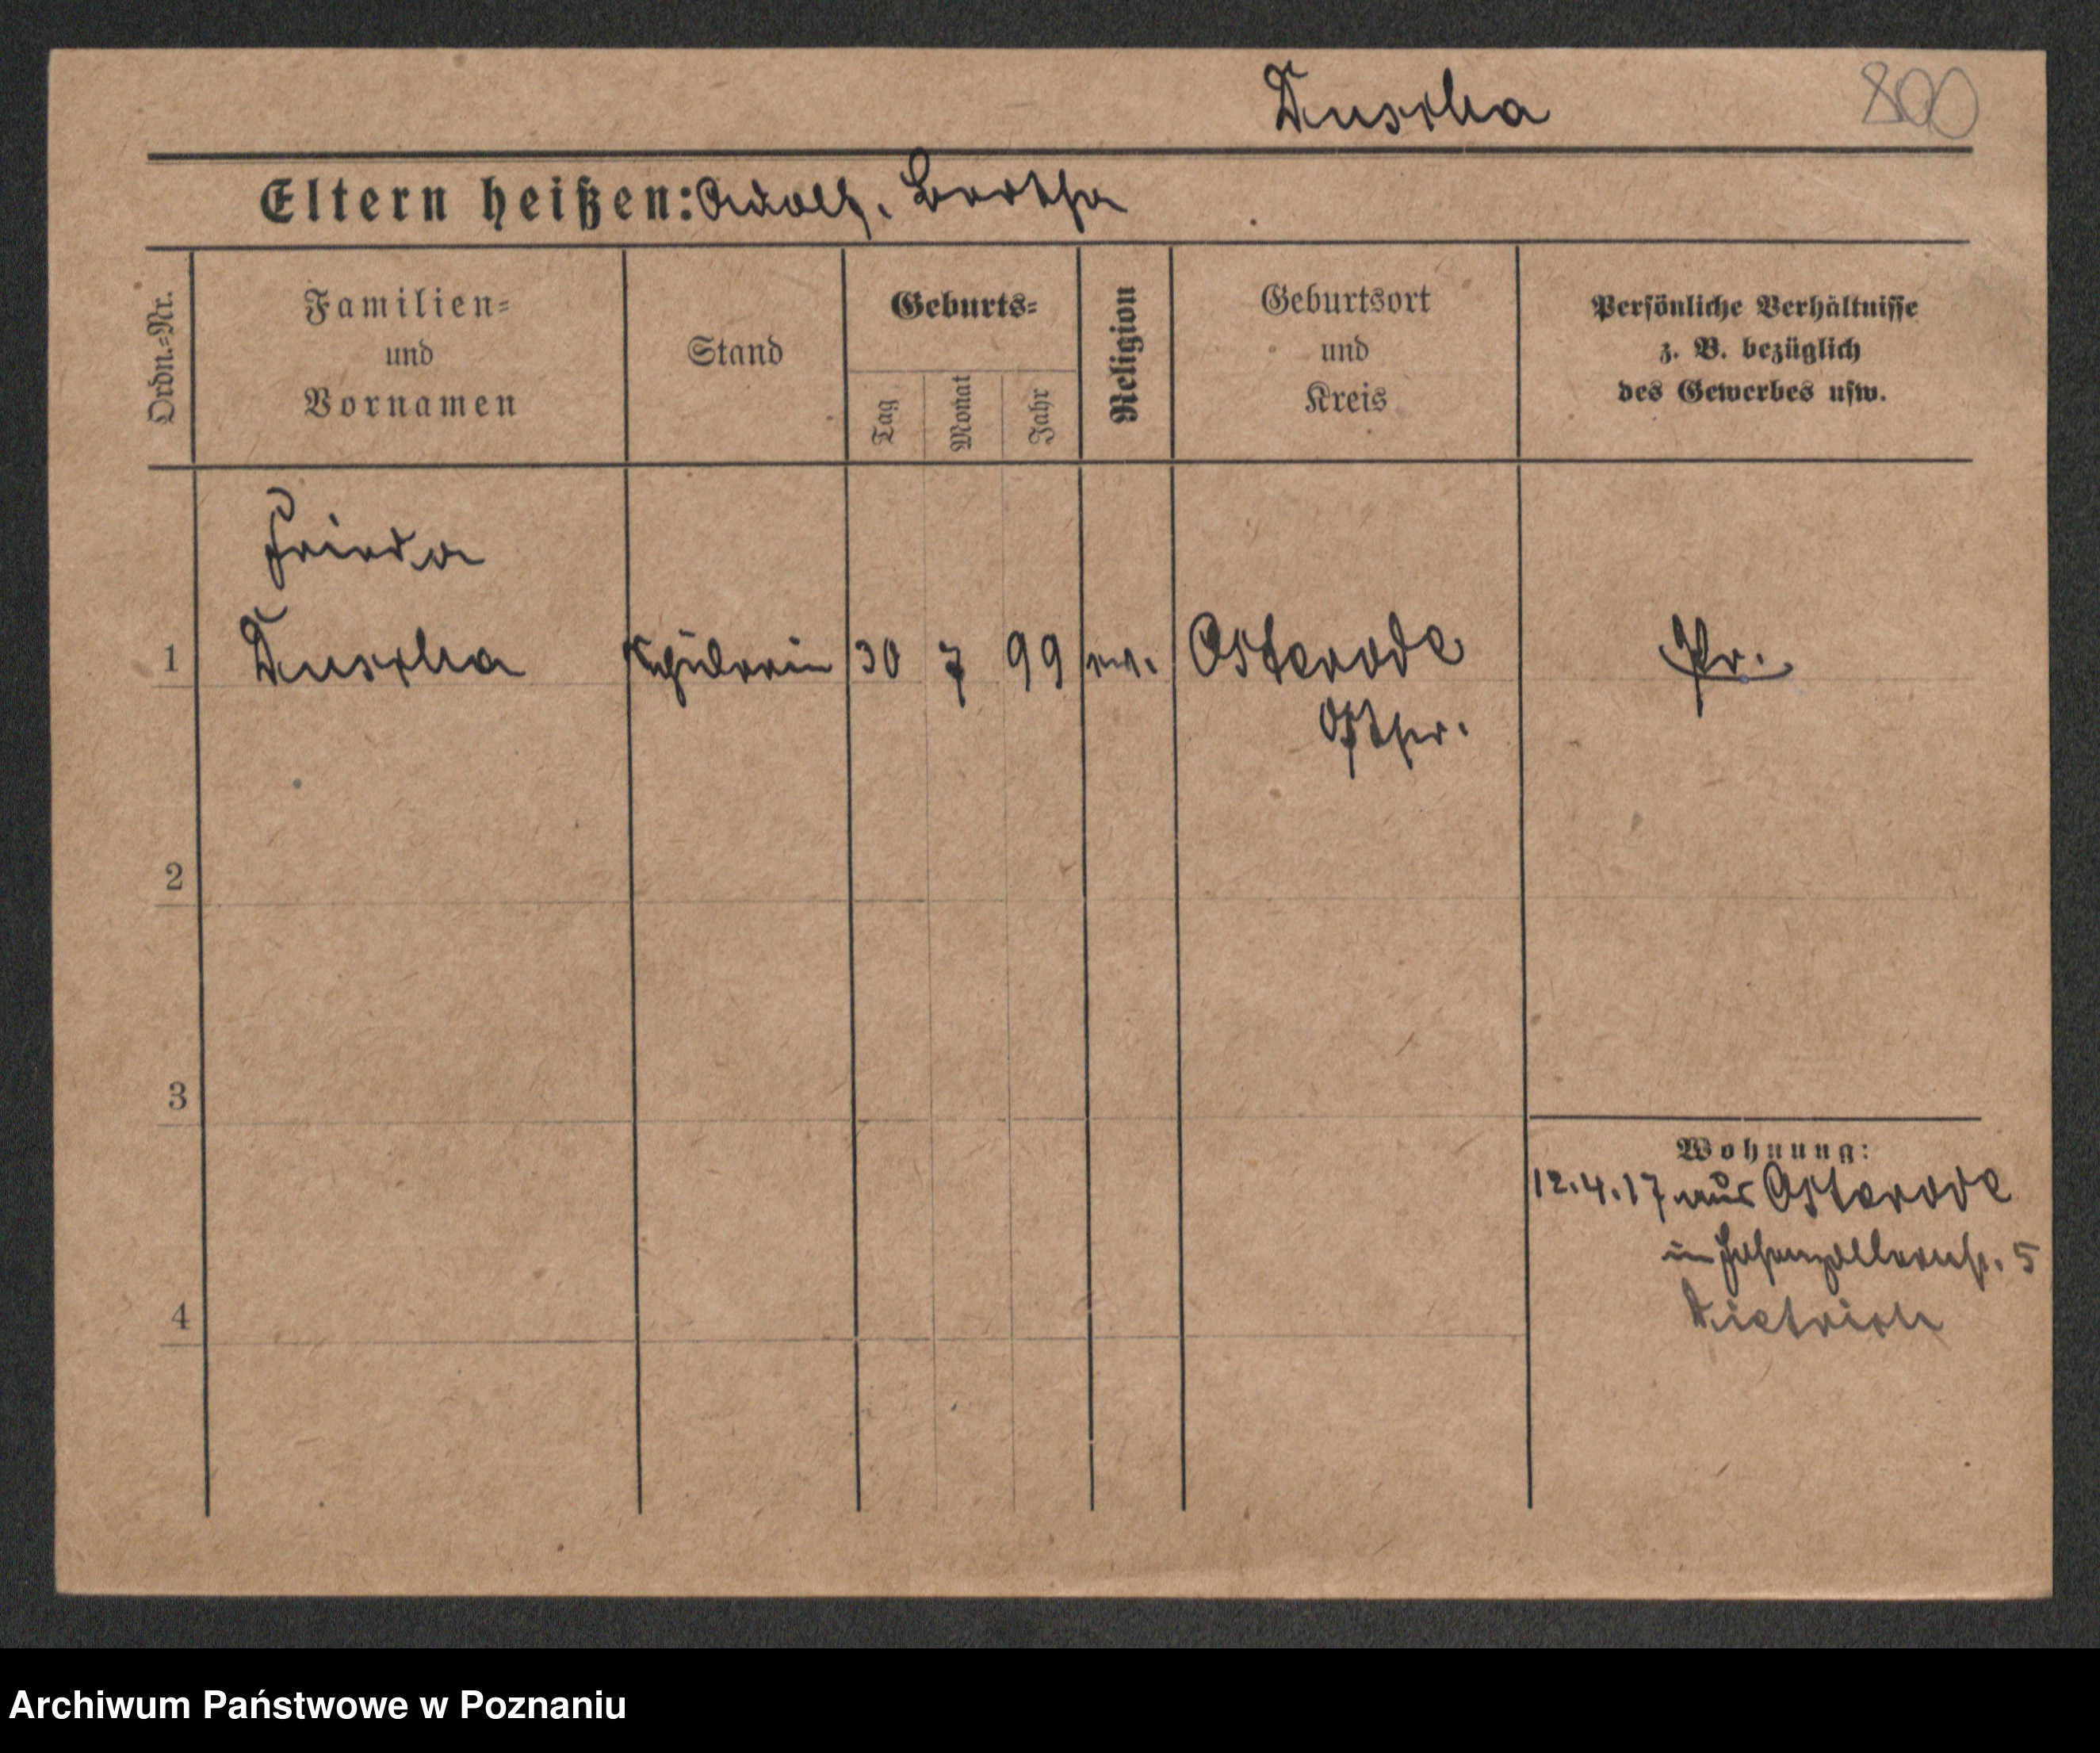 Duscha
800
Eltern heißen: Adolf, Bertha
Ordn.-Nr.
Familien-
und
Vornamen
Stand
Geburts-
Tag
Monat
Jahr
Religion
Geburtsort
und
Kreis
Persönliche Verhältnisse
z. B. bezüglich
des Gewerbes usw.
Frieda
1 Duscha Schülerin 30 7 99 ev. Osterode Pr.
Ostpr.
2
3
Wohnung:
12.4.17 aus Osterode
in Hohenzollernstr. 5
4
Dietrich
Archiwum Państwowe w Poznaniu